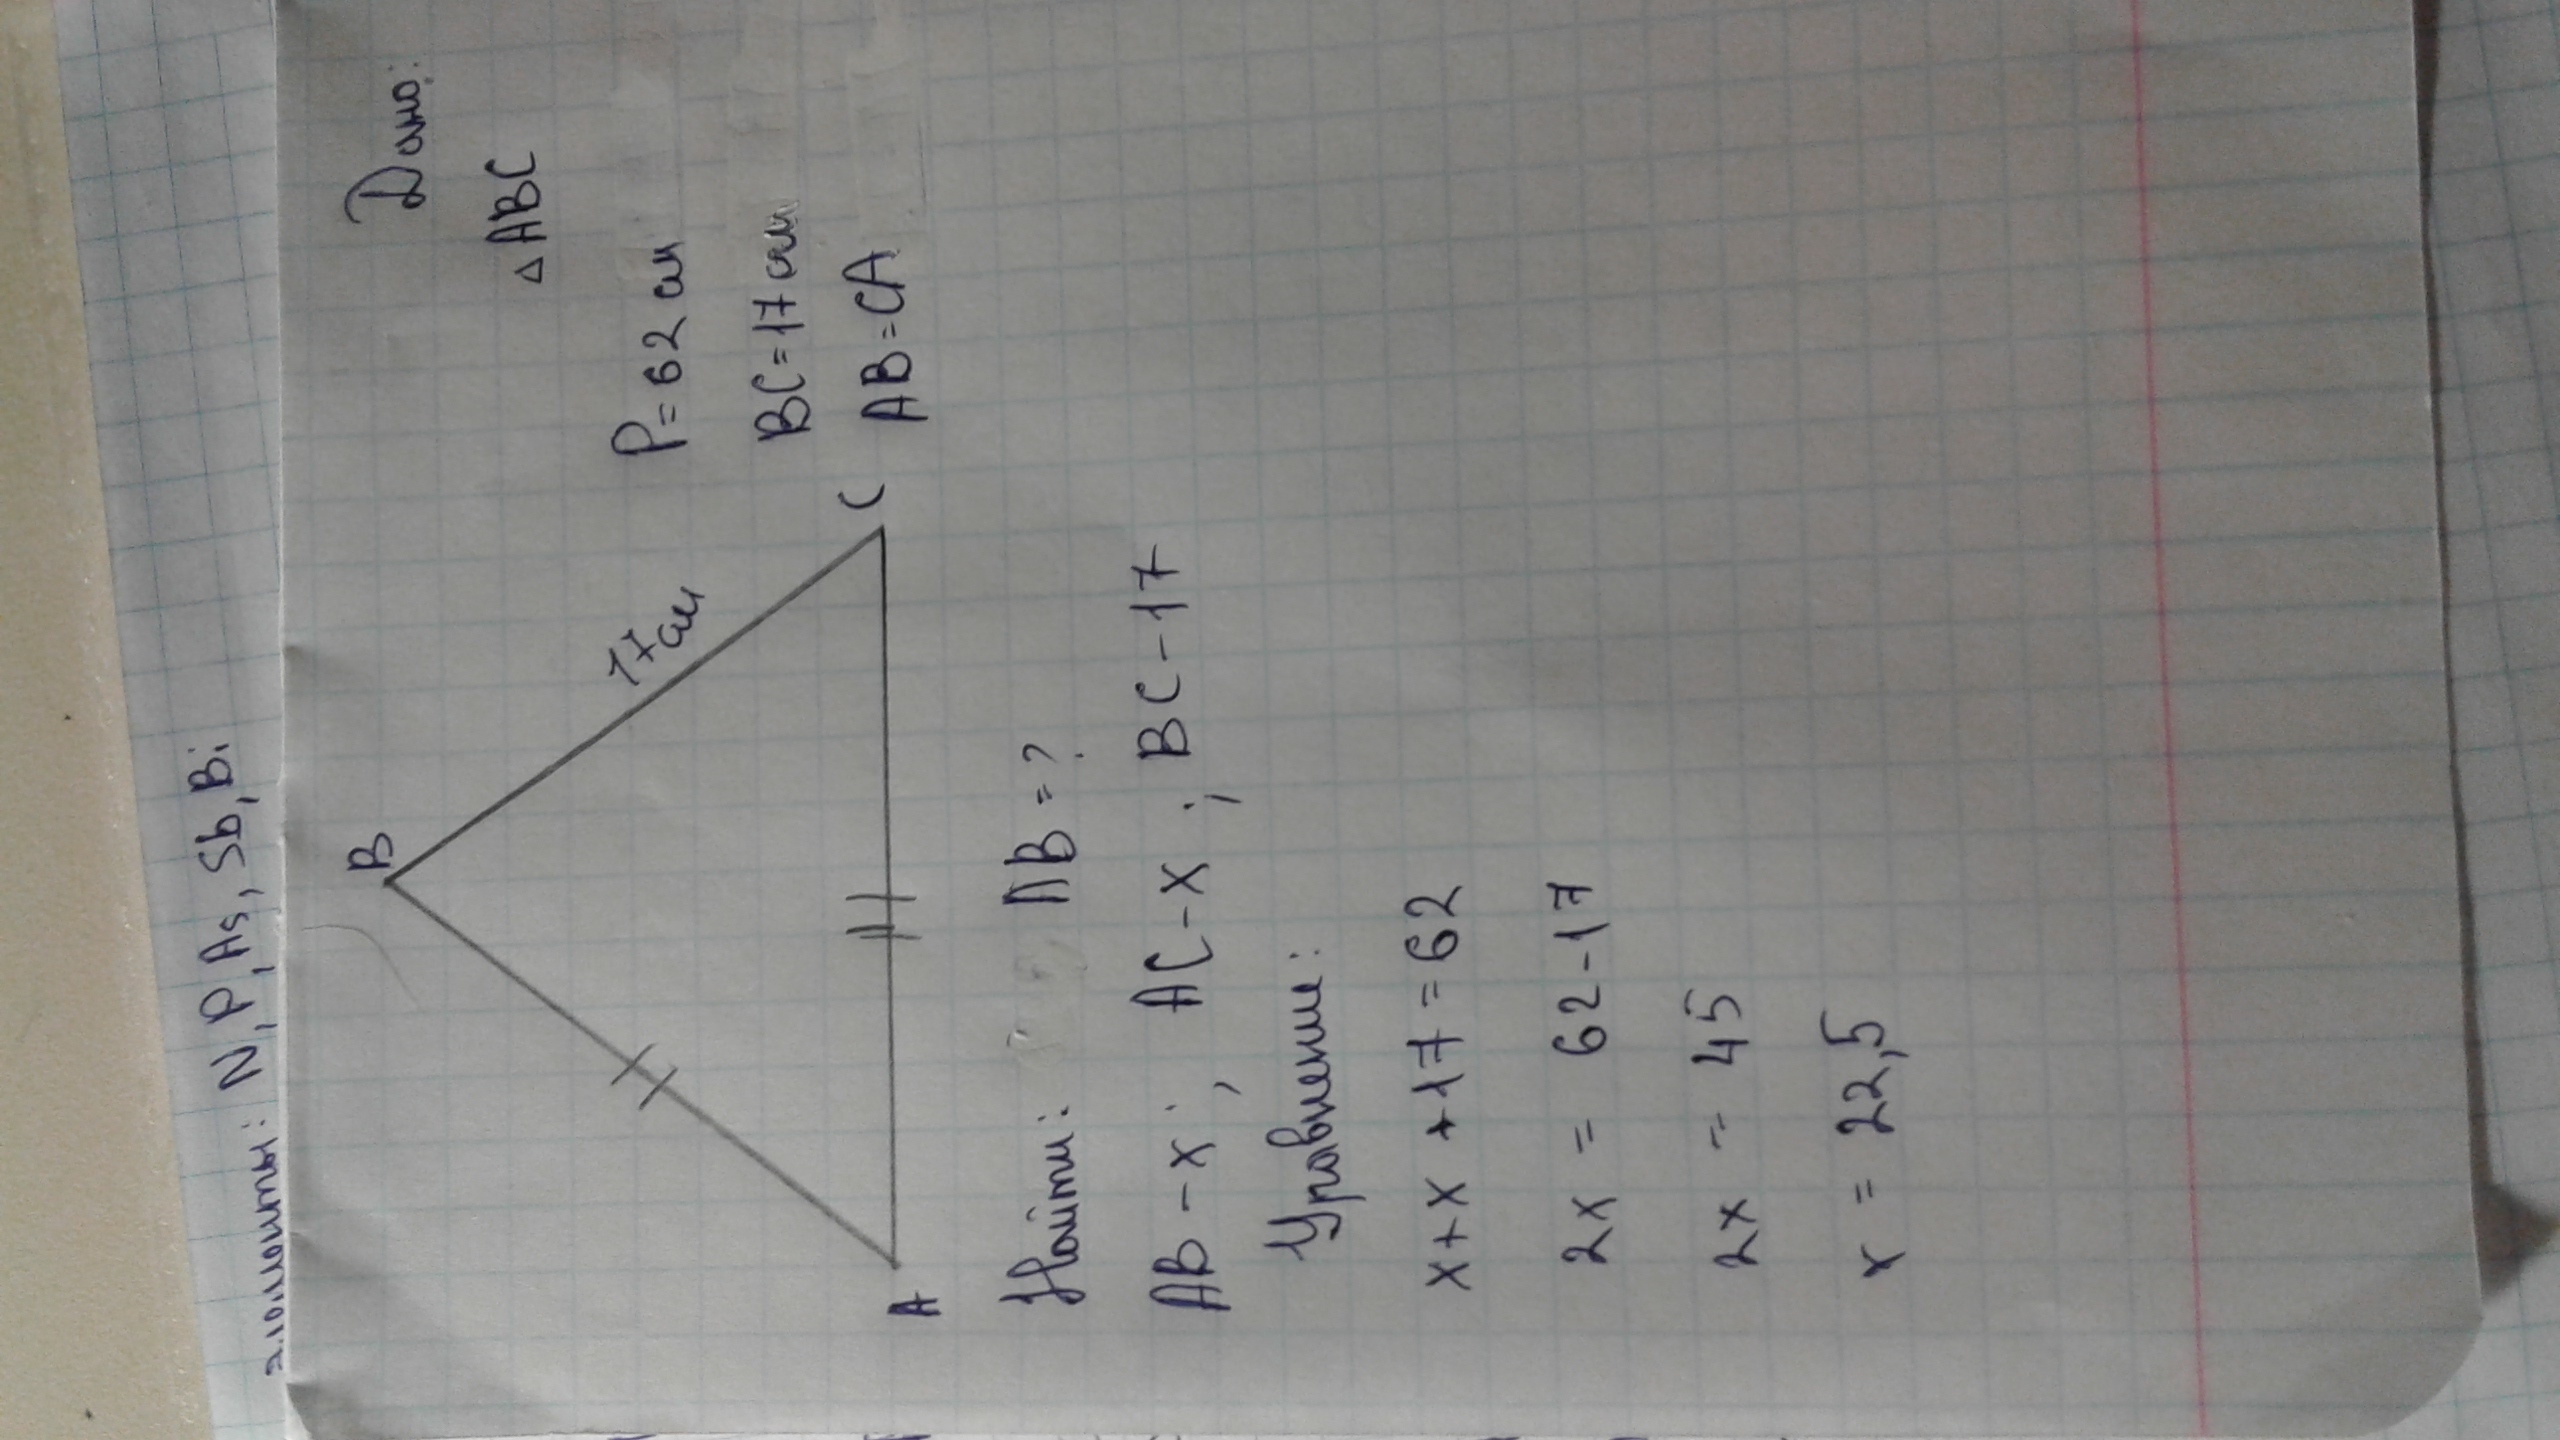 элементы: N, P, As, Sb, Bi
Дано:
△ ABC
P = 62 см
BC = 17 см
AB = CA
B
17 см
A
C
Найти: AB = ?
AB - x; AC - x; BC - 17
Уравнение:
x + x + 17 = 62
2x = 62 - 17
2x = 45
x = 22,5